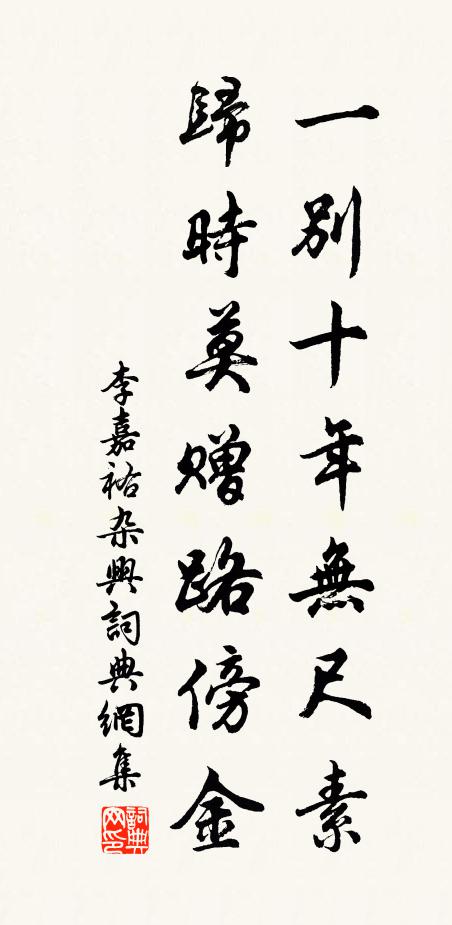 一別十年無尺素
歸時莫贈路傍金
李嘉祐杂興詞典網集
詞典网印